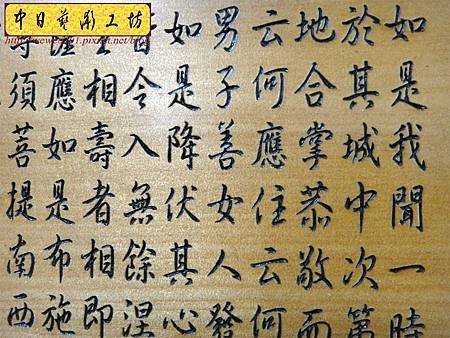 如是我聞一時
於其城中次第
地合掌恭敬而
云何應住云何
男子善女人發
如是降伏其心
令入無餘涅
相壽者相即
應如是布施
須菩提南西